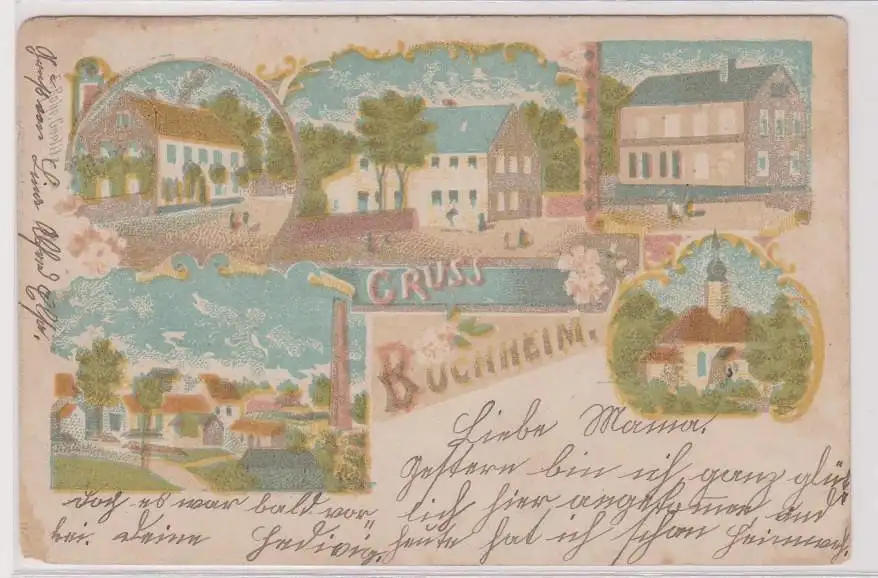 GRUSS
BUCHHEIM.
Liebe Mama.
gestern bin ich ganz glück
lich hier angekommen und
heute hat ich schon Heimweh.
doch es war bald vor"
bei. Deine Hedwig.
Gruß von